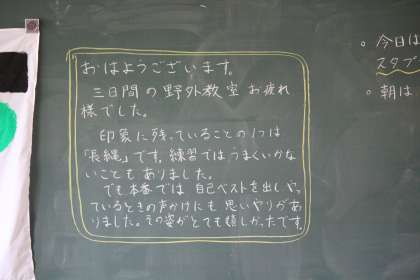 おはようございます。
三日間の野外教室お疲れ
様でした。
印象に残っていることの1つは
「長縄」です。練習ではうまくいかな
いこともありました。
でも本番では自己ベストを出し、やっ
ているときの声かけにも思いやりがあ
りました。その姿がとても嬉しかったです。
。今日は
スタブ
。朝は